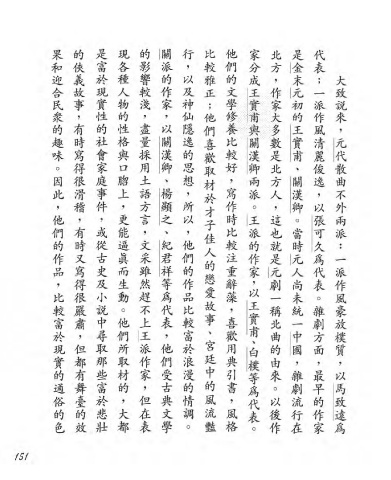 大致說來，元代散曲不外兩派：一派作風豪放樸質，以馬致遠爲
代表；一派作風清麗俊逸，以張可久爲代表。雜劇方面，最早的作家
是金末元初的王實甫、關漢卿。當時元人尚未統一中國，雜劇流行在
北方，作家大多數是北方人，這也就是元劇一稱北曲的由來。以後作
家分成王實甫與關漢卿兩派。王派的作家，以王實甫，白樸等爲代表。
他們的文學修養比較好，寫作時比較注重辭藻，喜歡用典引書，風格
比較雅正；他們喜歡取材於才子佳人的戀愛故事、宮廷中的風流豔
行，以及神仙隱逸的思想，所以，他們的作品比較富於浪漫的情調。
關派的作家，以關漢卿、楊顯之、紀君祥等爲代表，他們受古典文學
的影響較淺，盡量採用土語方言，文采雖然趕不上王派作家，但在表
現各種人物的性格與口脗上，更能逼眞而生動。他們所取材的，大都
是富於現實性的社會家庭事件，或從古史及小說中尋取那些富於悲壯
的俠義故事，有時寫得很滑稽，有時又寫得很嚴肅，但都有舞臺的效
果和迎合民眾的趣味。因此，他們的作品，比較富於現實的通俗的色
151